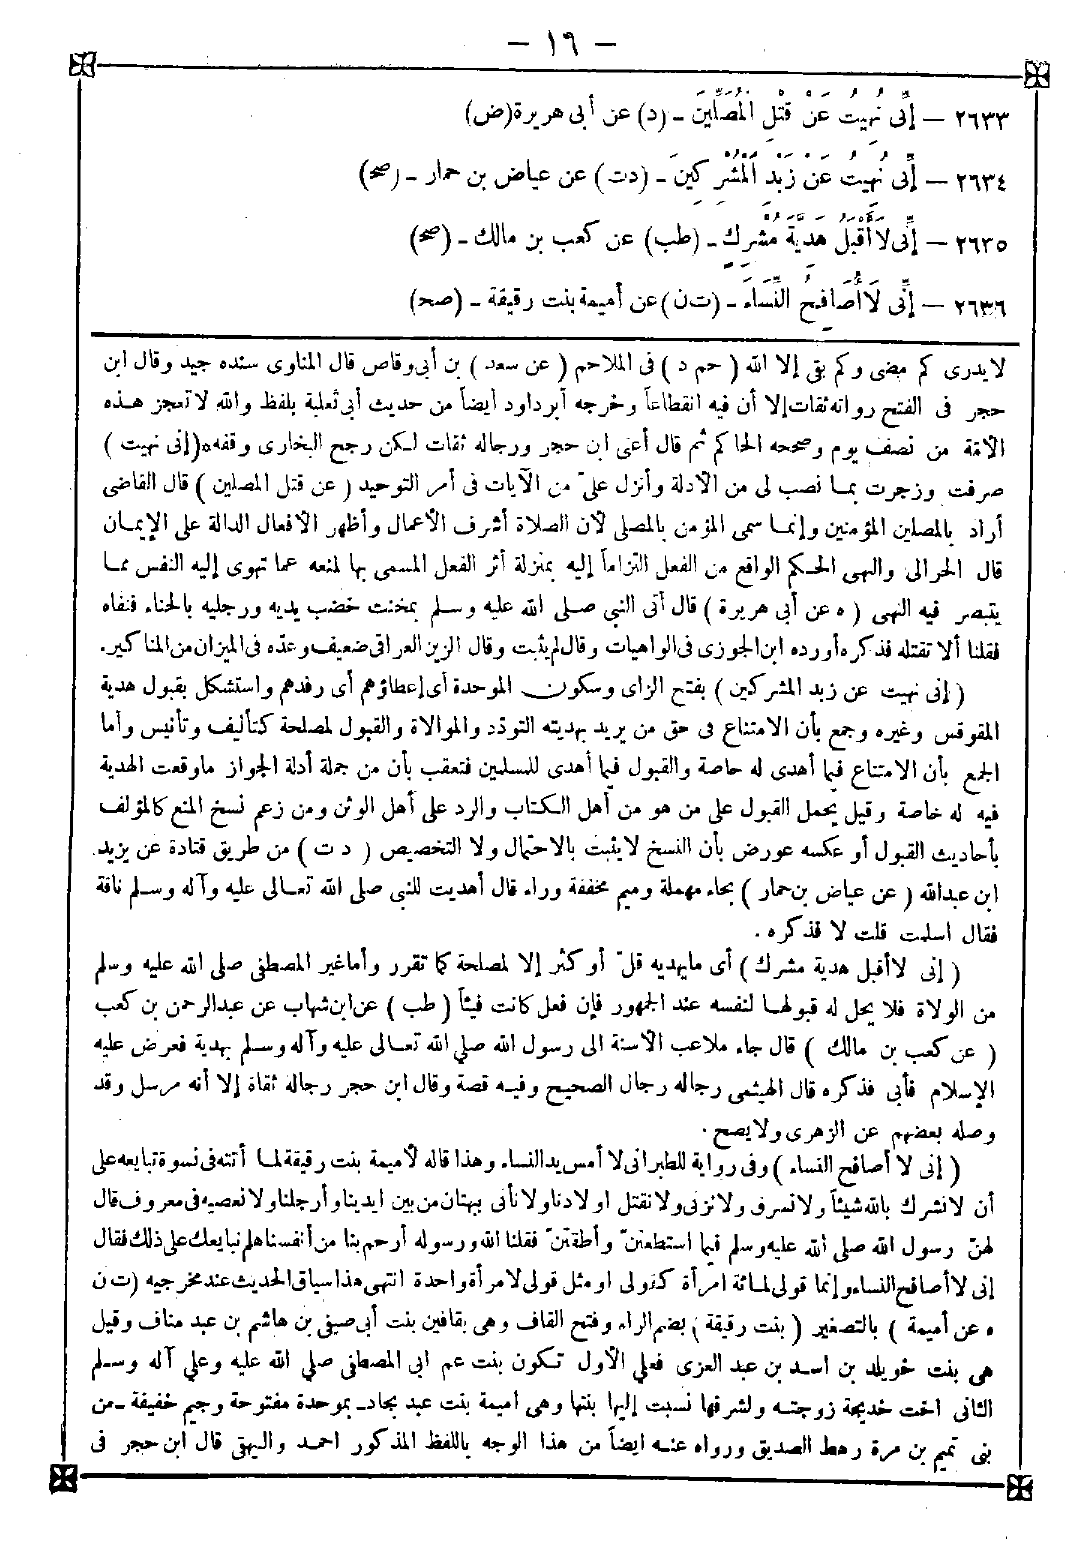 – ١٦ –
٢٦٣٣ – إِنِّى نُهِيتُ عَنْ قَتْلِ الْمُصَلِّينَ - (د) عن أبى هريرة (ض)
٢٦٣٤ – إِنِّى نُهِيتُ عَنْ زَبْدِ الْمُشْرِكِينَ - (دت) عن عياض بن حمار - (صح)
٢٦٣٥ – إِنِّى لَا أَقْبَلُ هَدِيَّةَ مُشْرِكٍ - (طب) عن كعب بن مالك - (صح)
٢٦٣٦ – إِنِّى لَا أُصَافِحُ النِّسَاءَ - (ت ن) عن أميمة بنت رقيقة - (صح)
لا يدرى كم مضى وكم بقى إلا الله ( حم د ) فى الملاحم ( عن سعد ) بن أبى وقاص قال المناوى سنده جيد وقال ابن
حجر فى الفتح رواته ثقات إلا أن فيه انقطاعاً وخرجه أبو داود أيضاً من حديث أبى ثعلبة بلفظ والله لا تعجز هذه
الأمة من نصف يوم وصححه الحاكم ثم قال أعنى ابن حجر ورجاله ثقات لكن رجح البخارى وقفه ه (إنى نهيت )
صرفت وزجرت بما نصب لى من الأدلة وأنزل علىّ من الآيات فى أمر التوحيد ( عن قتل المصلين ) قال القاضى
أراد بالمصلين المؤمنين وإنما سمى المؤمن بالمصلى لأن الصلاة أشرف الأعمال وأظهر الأفعال الدالة على الإيمان
قال الحرالى والنهى الحكم الواقع من الفعل التزاماً إليه بمنزلة أثر الفعل المسمى بها لمنعه عما تهوى إليه النفس مما
يتبصر فيه النهى ( ه عن أبى هريرة ) قال أتى النبي صلى الله عليه وسلم بمخنث خضب يديه ورجليه بالحناء فنفاه
فقلنا ألا تقتله فذكره أورده ابن الجوزى فى الواهيات وقال لم يثبت وقال الزين العراقى ضعيف وعدّه فى الميزان من المناكير.
( إنى نهيت عن زبد المشركين ) بفتح الزاى وسكون الموحدة أى إعطاؤهم أى رفدهم واستشكل بقبول هدية
المقوقس وغيره وجمع بأن الامتناع فى حق من يريد بهديته التودّد والموالاة والقبول لمصلحة كتأليف وتأنيس وأما
الجمع بأن الامتناع فيما أهدى له خاصة والقبول فيما أهدى للمسلمين فتعقب بأن من جملة أدلة الجواز ما وقعت الهدية
فيه له خاصة وقيل يحمل القبول على من هو من أهل الكتاب والرد على أهل الوثن ومن زعم نسخ المنع كالمؤلف
بأحاديث القبول أو عكسه عورض بأن النسخ لا يثبت بالاحتمال ولا التخصيص ( د ت ) من طريق قتادة عن يزيد
ابن عبدالله ( عن عياض بن حمار ) بحاء مهملة وميم مخففة وراء قال أهديت للنبي صلى الله تعالى عليه وآله وسلم ناقة
فقال اسلمت قلت لا فذكره .
( إنى لا أقبل هدية مشرك ) أى ما يهديه قلّ أو كثر إلا لمصلحة كما تقرر وأما غير المصطفى صلى الله عليه وسلم
من الولاة فلا يحل له قبولها لنفسه عند الجمهور فإن فعل كانت فيئاً ( طب ) عن ابن شهاب عن عبدالرحمن بن كعب
( عن كعب بن مالك ) قال جاء ملاعب الأسنة الى رسول الله صلى الله تعالى عليه وآله وسلم بهدية فعرض عليه
الإسلام فأبى فذكره قال الهيثمى رجاله رجال الصحيح وفيه قصة وقال ابن حجر رجاله ثقاة إلا أنه مرسل وقد
وصله بعضهم عن الزهرى ولا يصح .
( إنى لا أصافح النساء ) وفى رواية للطبرانى لا أمس يد النساء وهذا قاله لأميمة بنت رقيقة لما أتته فى نسوة تبايعه على
أن لا نشرك بالله شيئاً ولا نسرق ولا نزنى ولا نقتل اولادنا ولا نأتى ببهتان من بين ايدينا وأرجلنا ولا نعصيه فى معروف قال
لهنّ رسول الله صلى الله عليه وسلم فيما استطعتنّ وأطقتنّ فقلنا الله ورسوله أرحم بنا من أنفسنا هلم نبايعك على ذلك فقال
إنى لا أصافح النساء وإنما قولى لمائة امرأة كقولى او مثل قولى لامرأة واحدة انتهى هذا سياق الحديث عند مخرجيه (ت ن
ه عن أميمة ) بالتصغير ( بنت رقيقة ) بضم الراء وفتح القاف وهى بقافين بنت أبى صيفى بن هاشم بن عبد مناف وقيل
هى بنت خويلد بن أسد بن عبد العزى فعلى الأول تكون بنت عم ابى المصطفى صلى الله عليه وعلى آله وسلم
الثانى اخت خديجة زوجته ولشرفها نسبت إليها بنتها وهى أميمة بنت عبد بجاد - بموحدة مفتوحة وجيم خفيفة - من
بنى تميم بن مرة رهط الصديق ورواه عنه ايضاً من هذا الوجه باللفظ المذكور احمد والبيهقى قال ابن حجر فى